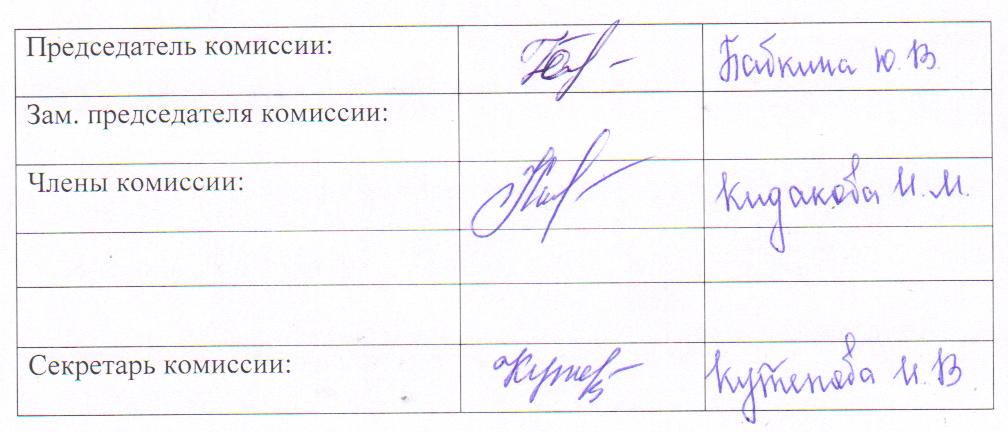 Председатель комиссии: Бабкина Ю.В.
Зам. председателя комиссии:
Члены комиссии: Кидакова И.М.
Секретарь комиссии: Кутепова И.В.